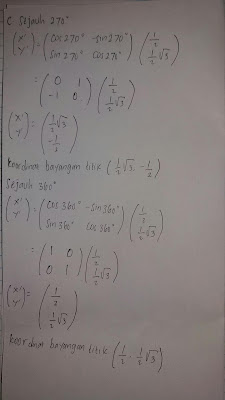 C Sejauh 270°
(x' y') = (cos 270° -sin 270° sin 270° cos 270°) (1/2 1/2√3)
= (0 1 -1 0) (1/2 1/2√3)
(x' y') = (1/2√3 -1/2)
Koordinat bayangan titik (1/2√3, -1/2)
Sejauh 360°
(x' y') = (cos 360° -sin 360° sin 360° cos 360°) (1/2 1/2√3)
= (1 0 0 1) (1/2 1/2√3)
(x' y') = (1/2 1/2√3)
Koordinat bayangan titik (1/2, 1/2√3)